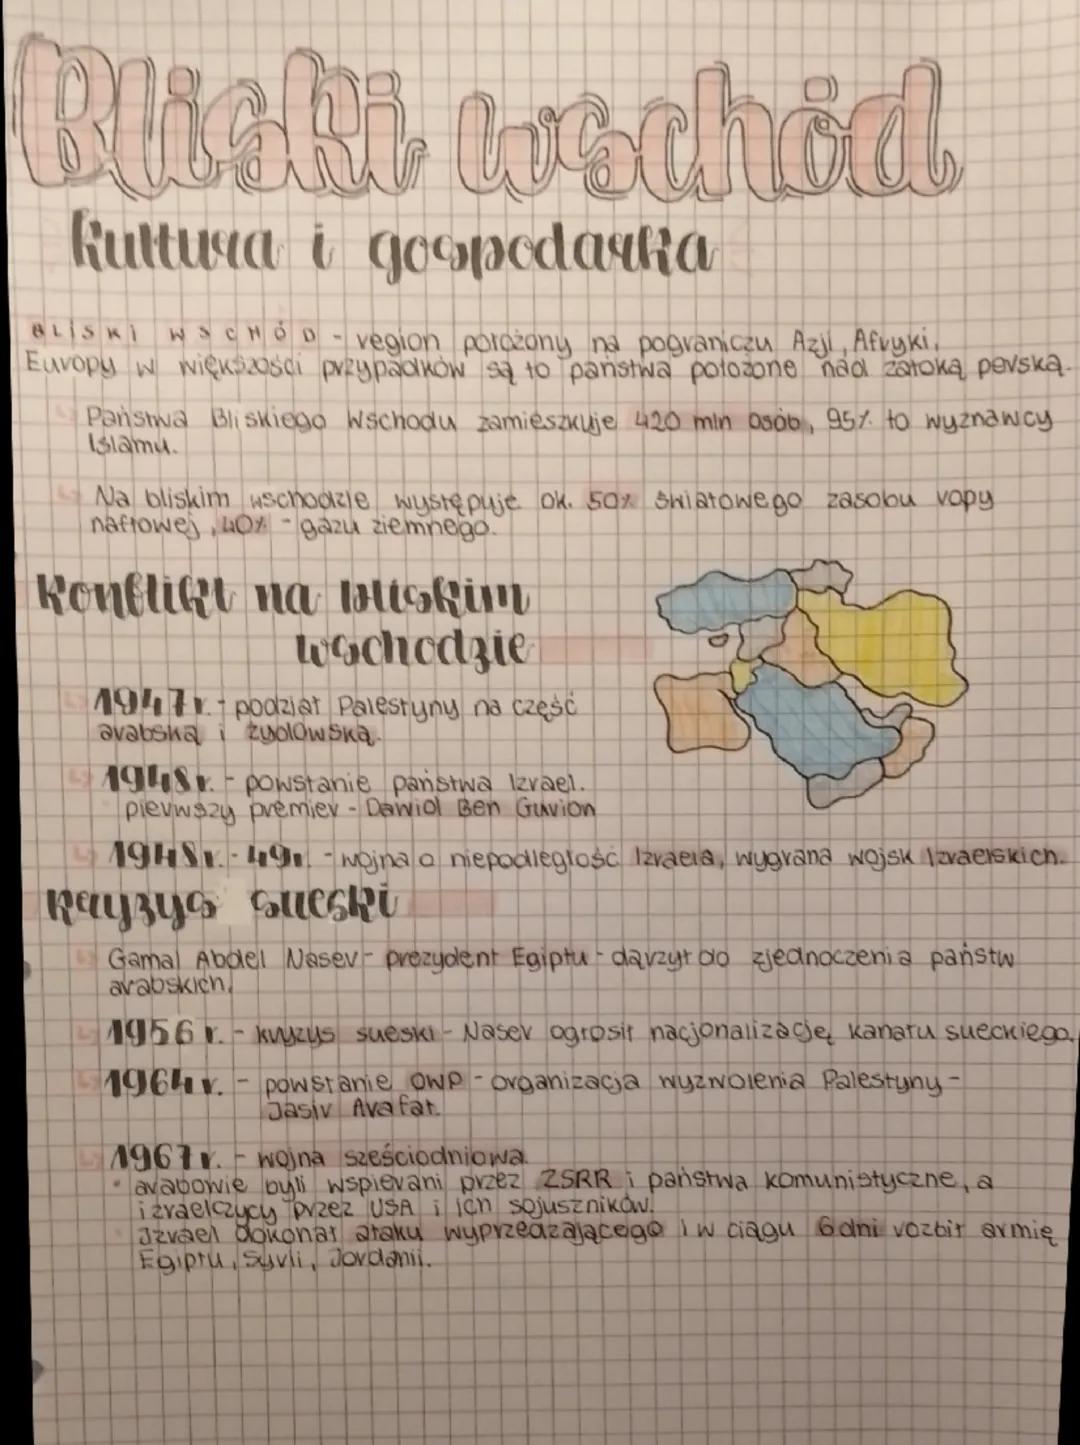 Bliski wschód
kultura i gospodarka
BLISKI WSCHÓD - region położony na pograniczu Azji, Afryki,
Europy w większości przypadków są to państwa położone nad zatoką perską.
Państwa Bliskiego Wschodu zamieszkuje 420 mln osób, 95% to wyznawcy
Islamu.
Na bliskim wschodzie występuje ok. 50% światowego zasobu ropy
naftowej, 40% - gazu ziemnego.
Konflikt na bliskim
wschodzie
1947r. - podział Palestyny na część
arabską i żydowską.
1948r. - powstanie państwa Izrael.
pierwszy premier - Dawid Ben Gurion
1948r. - 49r. - wojna o niepodległość Izraela, wygrana wojsk Izraelskich.
Kryzys sueski
Gamal Abdel Naser - prezydent Egiptu - dążył do zjednoczenia państw
arabskich.
1956 r. - kryzys sueski - Naser ogłosił nacjonalizację kanału sueckiego.
1964 r. - powstanie OWP - organizacja wyzwolenia Palestyny -
Jasir Arafat.
1967 r. - wojna sześciodniowa.
• arabowie byli wspierani przez ZSRR i państwa komunistyczne, a
izraelczycy przez USA i ich sojuszników.
Izrael dokonał ataku wyprzedzającego i w ciągu 6 dni rozbił armię
Egiptu, Syrii, Jordanii.